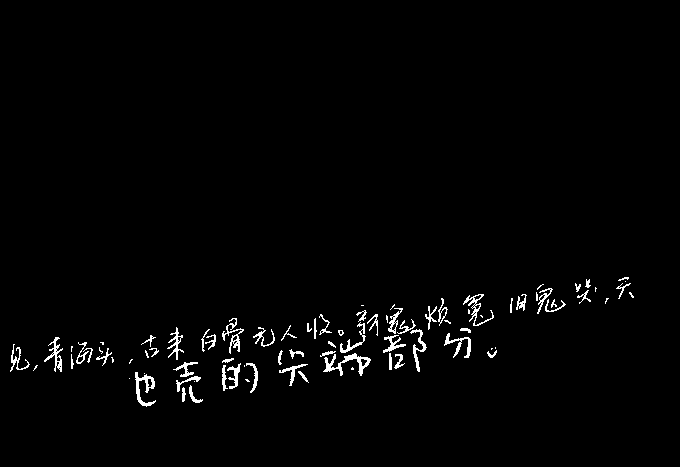 见,青海头,古来白骨无人收。新鬼烦冤旧鬼哭,天
也壳的尖端部分。